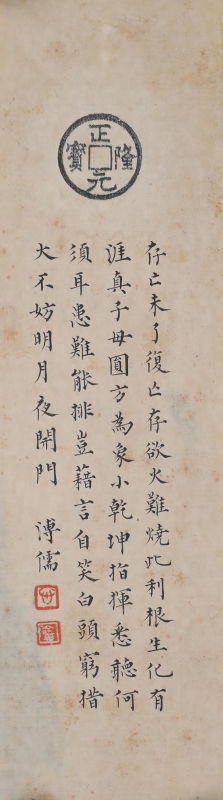 正隆元寶
存亡未了復亡存欲火難燒此利根生化有
涯真子母圓方為象小乾坤指揮悉聽何
須耳患難能排豈藉言自笑白頭窮措
大不妨明月夜開門 溥儒